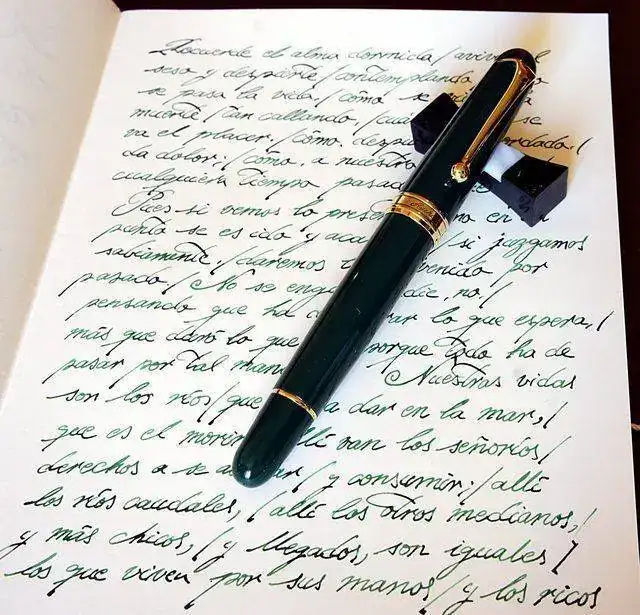 Recuerde el alma dormida, / aviv el
seso y despierte / contemplando
se pasa la vida, / cómo se
muerte / tan callando, / cuá se
va el placer, / cómo, despu ordado, /
da dolor; / cómo, a nuestro
cualquiera tiempo pasad
Pues si vemos lo prese mo en
punto se es ido y aca / si juzgamos
sabiamente, / daremos venido por
pasado. / No se eng die, no, /
pensando que ha d rar lo que espera, /
más que duró lo que porque todo ha de
pasar por tal man Nuestras vidas
son los ríos / que a dar en la mar, /
que es el morir allí van los señoríos /
derechos a se a ar / y consumir; / allí
los ríos caudales, / allí los otros medianos, /
y más chicos, / y llegados, son iguales /
los que viven por sus manos / y los ricos